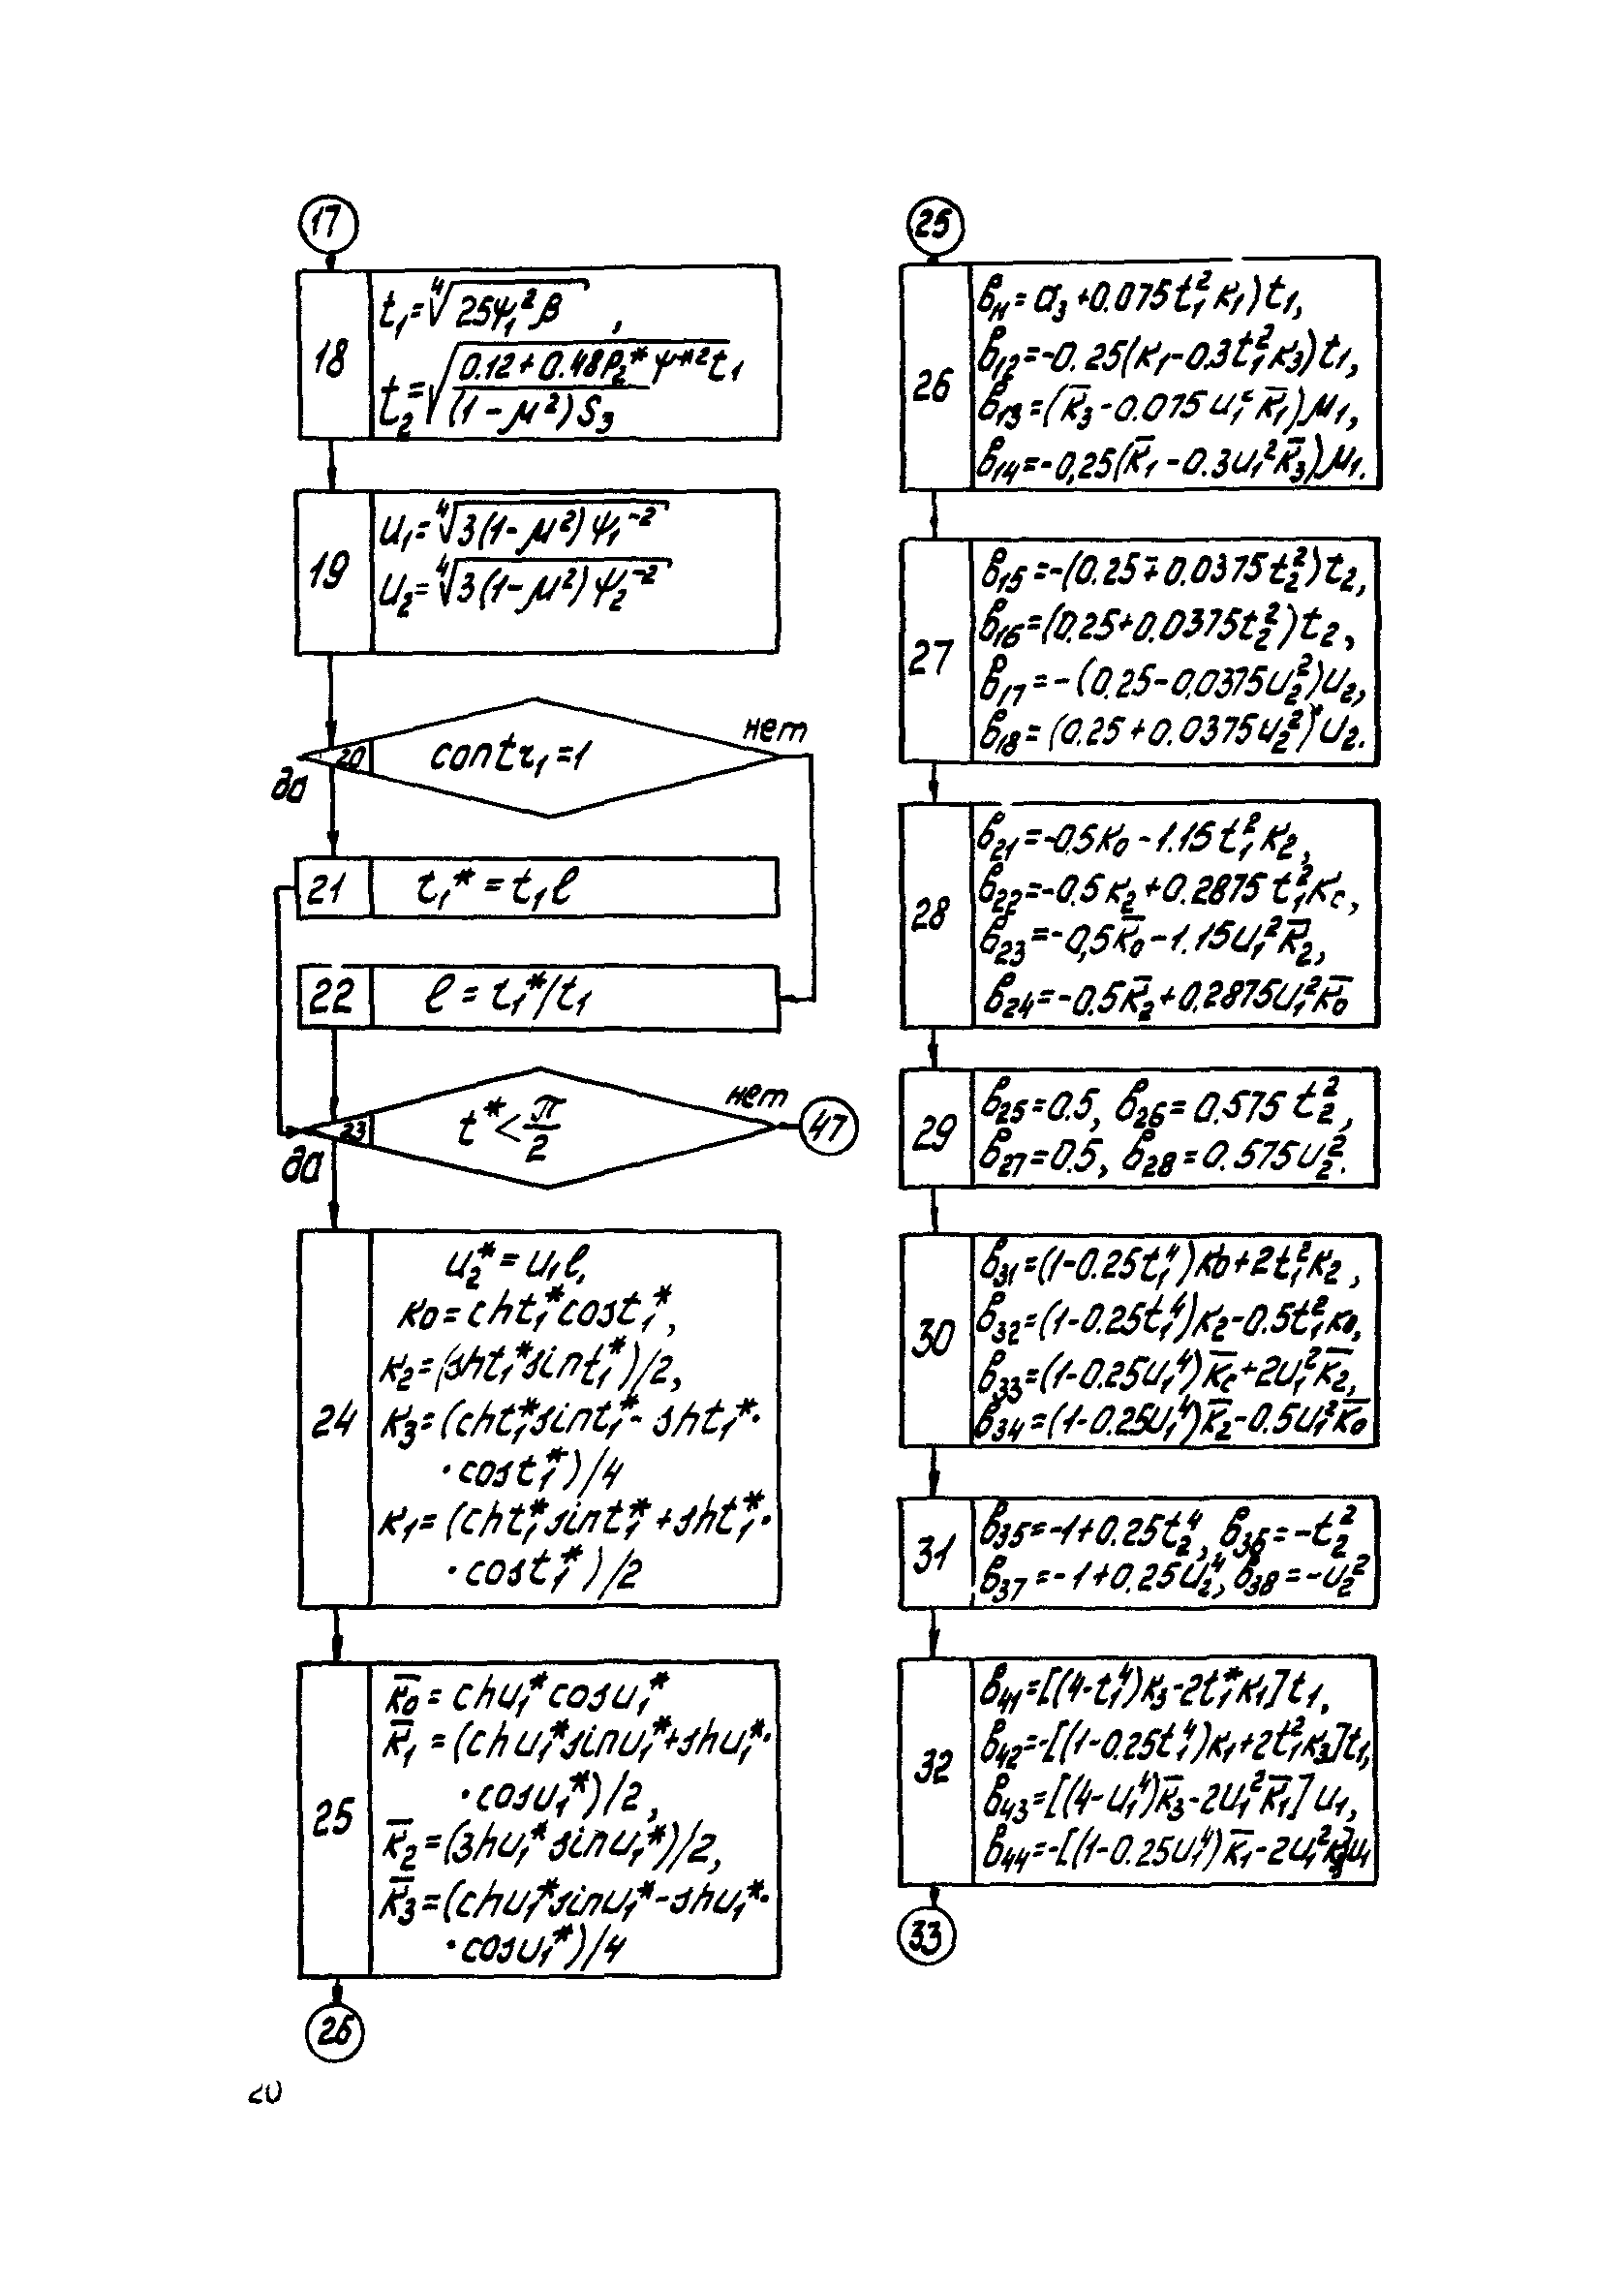 17
18
t₁=⁴√25ψ₁²β ,
t₂=√(0.12+0.48P₂*ψ*²t₁
(1-μ²)S₃
19
u₁=⁴√3(1-μ²)ψ₁⁻²
u₂=⁴√3(1-μ²)ψ₂⁻²
20
contr₁=1
нет
да
21
t₁*=t₁ℓ
22
ℓ=t₁*/t₁
23
t*<π/2
нет
47
да
24
u₂*=u₁ℓ,
к0=cht₁*cost₁*,
к₂=(sht₁*sint₁*)/2,
к₃=(cht₁*sint₁*-sht₁*·
·cost₁*)/4
к₁=(cht₁*sint₁*+sht₁*·
·cost₁*)/2
25
к̅₀=chu₁*cosu₁*
к̅₁=(chu₁*sinu₁*+shu₁*·
·cosu₁*)/2,
к̅₂=(shu₁*sinu₁*)/2,
к̅₃=(chu₁*sinu₁*-shu₁*·
·cosu₁*)/4
26
20
25
26
β₁₁=a₃+0.075t₁²к₁)t₁,
β₁₂=-0.25(к₁-0.3t₁²к₃)t₁,
β₁₃=(к̅₃-0.075u₁²к̅₁)μ₁,
β₁₄=-0,25(к̅₁-0.3u₁²к̅₃)μ₁.
27
β₁₅=-(0.25+0.0375t₂²)t₂,
β₁₆=(0.25+0.0375t₂²)t₂,
β₁₇=-(0.25-0.0375u₂²)u₂,
β₁₈=(0.25+0.0375u₂²)*u₂.
28
β₂₁=-0.5к₀-1.15t₁²к₂,
β₂₂=-0.5к₂+0.2875t₁²кc,
β₂₃=-0,5к̅₀-1.15u₁²к̅₂,
β₂₄=-0.5к̅₂+0.2875u₁²к̅₀
29
β₂₅=0.5, β₂₆=0.575t₂²,
β₂₇=0.5, β₂₈=0.575u₂².
30
β₃₁=(1-0.25t₁⁴)к0+2t₁²к₂,
β₃₂=(1-0.25t₁⁴)к₂-0.5t₁²к₀,
β₃₃=(1-0.25u₁⁴)к̅c+2u₁²к̅₂,
β₃₄=(1-0.25u₁⁴)к̅₂-0.5u₁²к̅₀
31
β₃₅=-1+0.25t₂⁴, β₃₆=-t₂²
β₃₇=-1+0.25u₂⁴, β₃₈=-u₂²
32
β₄₁=[(4-t₁⁴)к₃-2t₁*к₁]t₁,
β₄₂=-[(1-0.25t₁⁴)к₁+2t₁²к₃]t₁,
β₄₃=[(4-u₁⁴)к̅₃-2u₁²к̅₁]u₁,
β₄₄=-[(1-0.25u₁⁴)к̅₁-2u₁²к̅₃]u₁
33